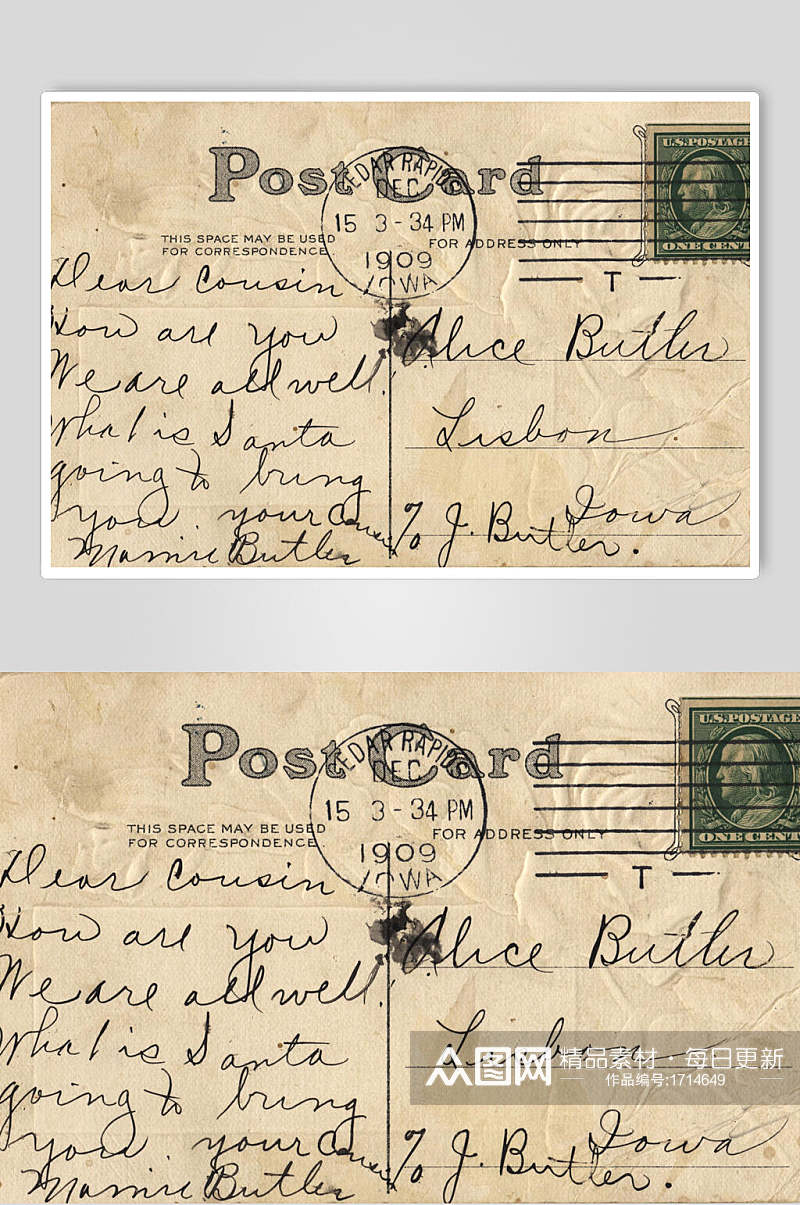 Post Card
CEDAR RAPIDS
DEC
15 3-34 PM
1909
IOWA
T
U.S. POSTAGE
ONE CENT
THIS SPACE MAY BE USED
FOR CORRESPONDENCE.
FOR ADDRESS ONLY
Dear Cousin
How are you
We are all well.
What is Santa
going to bring
you. your Cousin
Mamie Butler
Alice Butler
Lisbon.
Iowa
% J. Butler.
Post Card
CEDAR RAPIDS
DEC
15 3-34 PM
1909
IOWA
T
U.S. POSTAGE
ONE CENT
THIS SPACE MAY BE USED
FOR CORRESPONDENCE.
FOR ADDRESS ONLY
Dear Cousin
How are you
We are all well.
What is Santa
going to bring
you. your Cousin
Mamie Butler
Alice Butler
Lisbon
Iowa
% J. Butler.
人人图网
精品素材·每日更新
作品编号:1714649